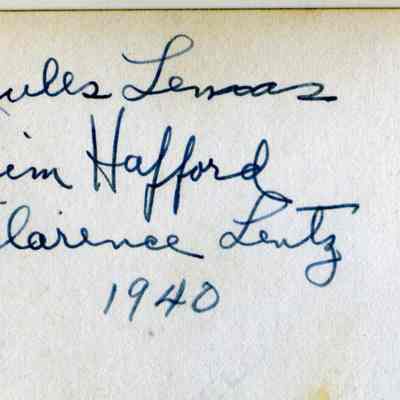 ules Lemoas
im Hafford
Clarence Lentz
1940